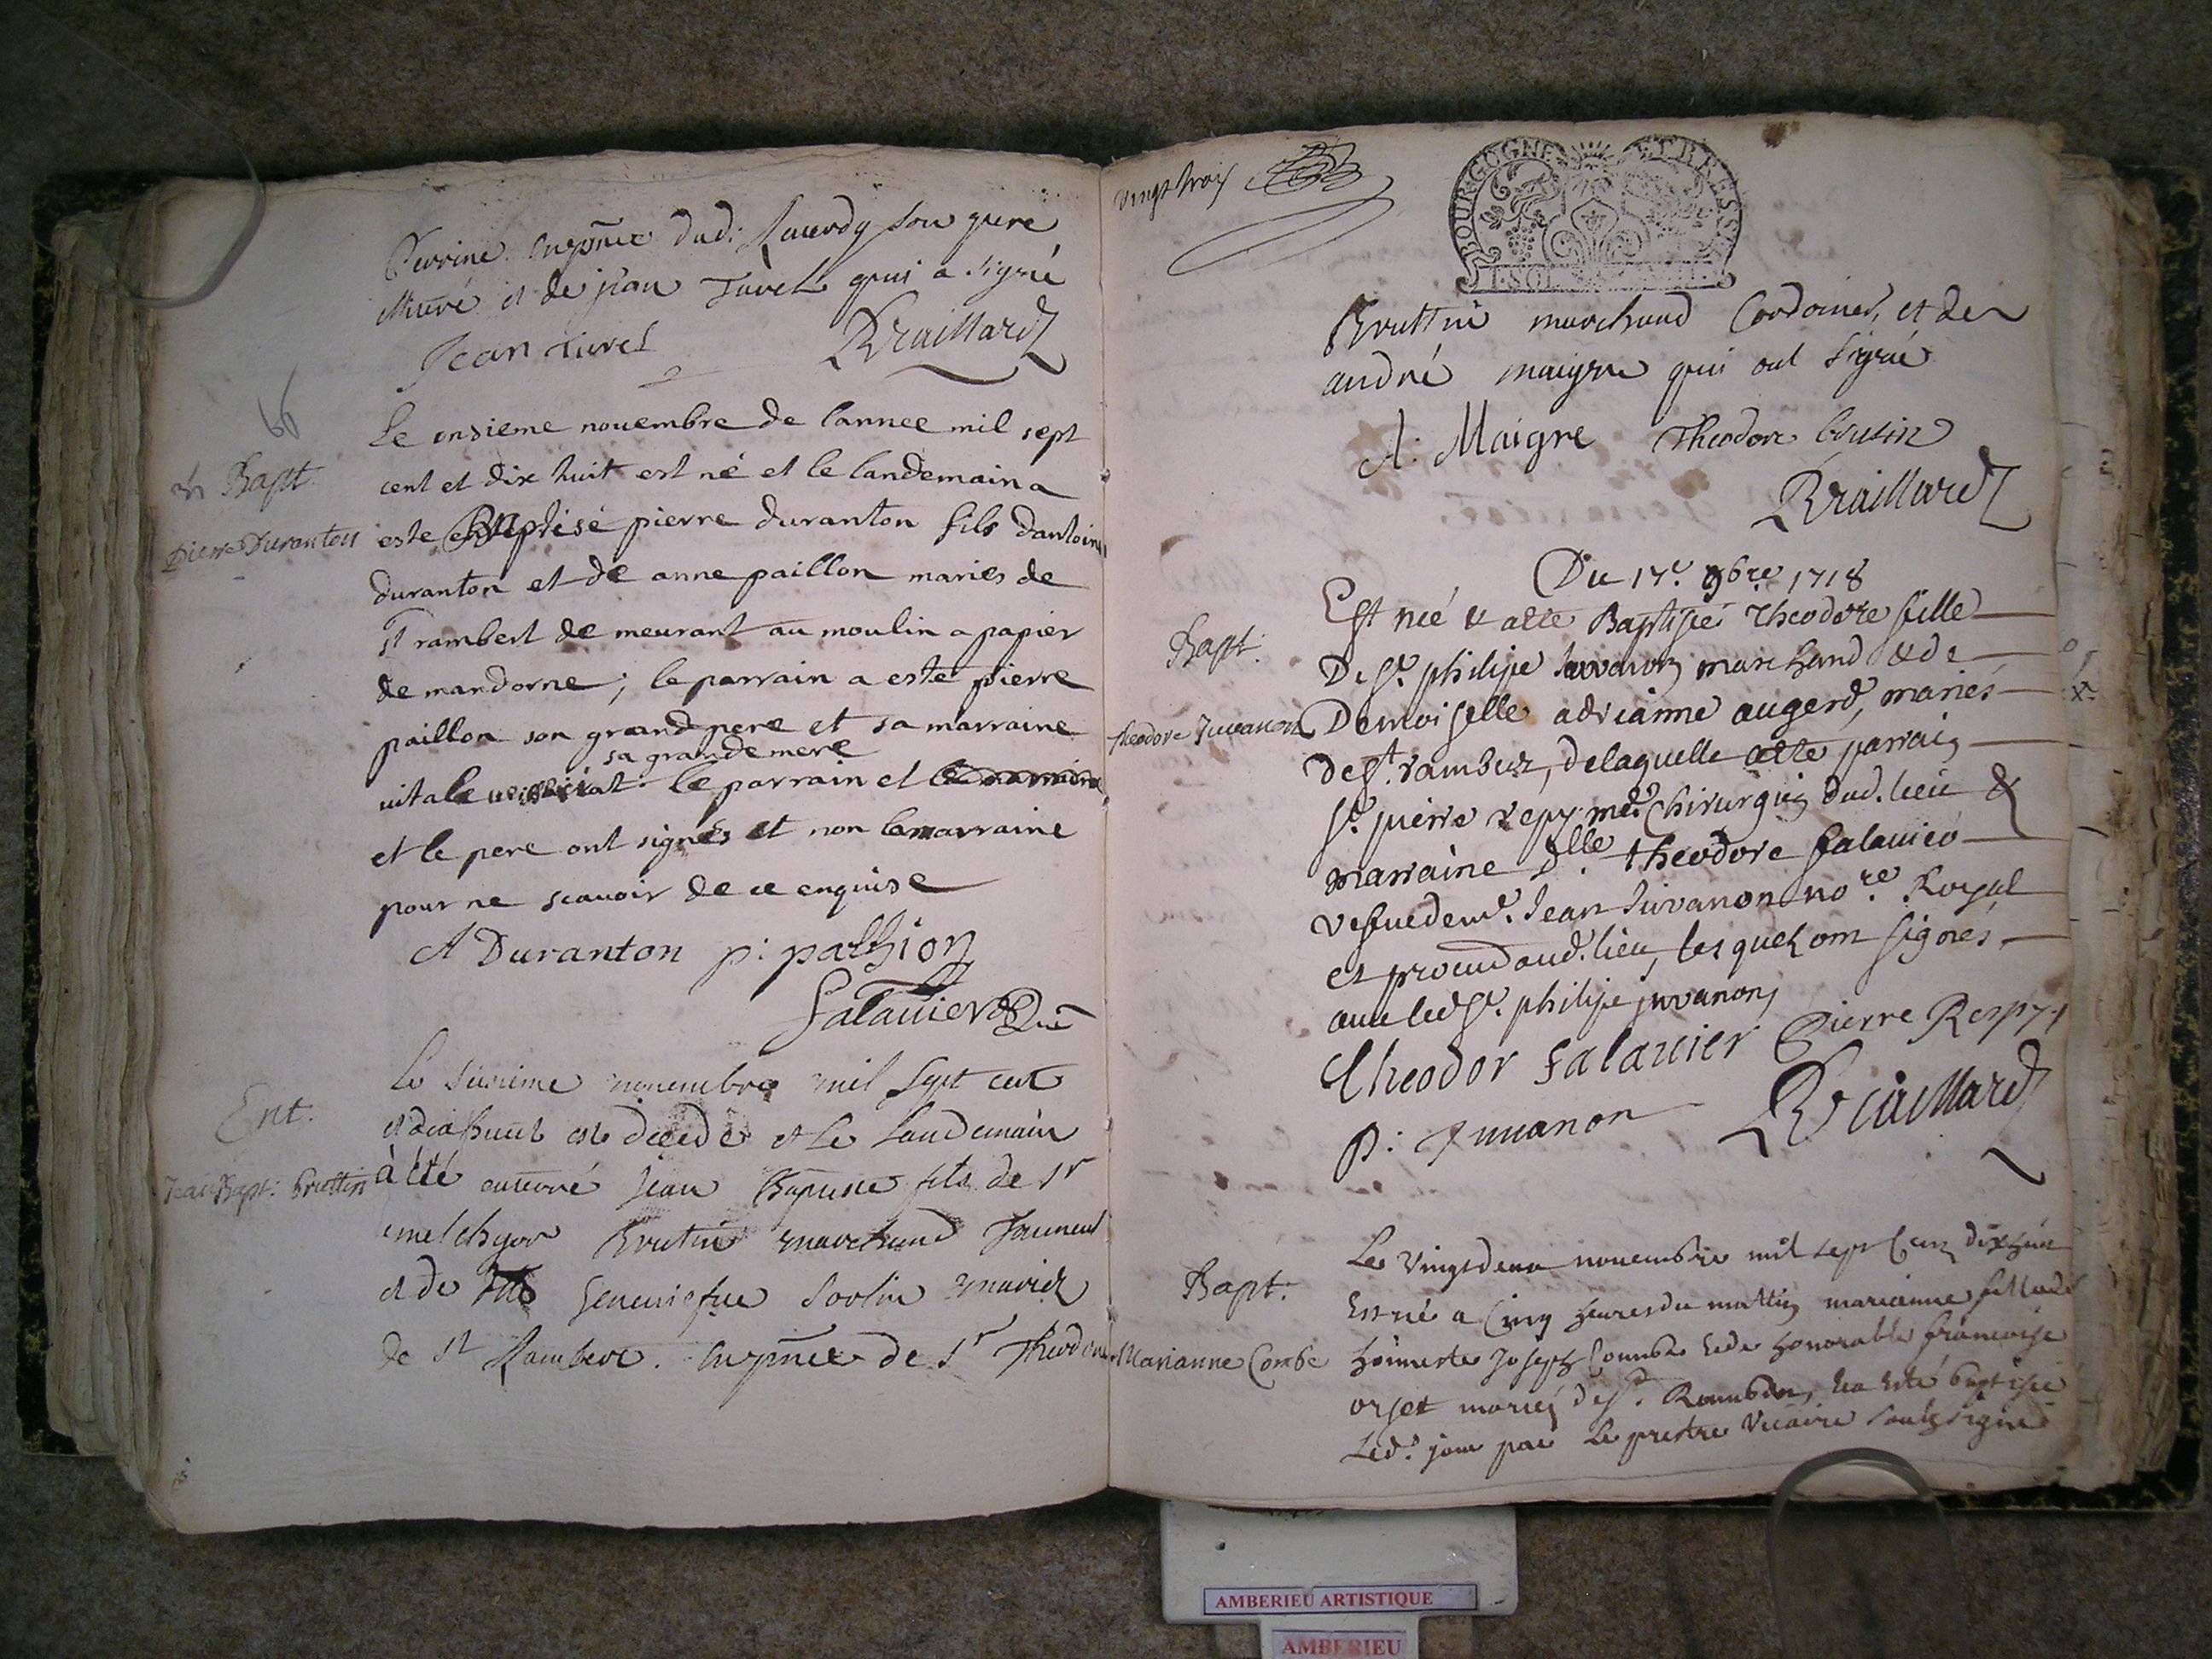 Perrine en pñce dud: Raverdy son pere
et de jean Turel qui a signé
Jean Turel Braillard
66
Bapt
Pierre Duranton
Le onsieme nouembre de lannee mil sept
cent et dix huit est né et le landemain a
este Baptisé pierre duranton fils dantoine
duranton et de anne paillon maries de
st rambert demeurant au moulin a papier
de mandorne; le parrain a esté pierre
paillon son grand pere et sa marraine
sa grande mere
uitale le parrain et le marraine
et le pere ont signés et non la marraine
pour ne scauoir de ce enquise
A Duranton p: palhion
falauier
Ent.
Jean Bapt: bruttin
Le nouembre mil sept cent
et dix huict est decedé et le landemain
à été enterré jean baptiste fils de sr
melchyor Brutin marchand Tanneur
et de geneuiefue sorlin mariez
de st Rambert. en pñce de sr Theodore
vingt trois
BOURGOGNE ET BRESSE
Bruttin marchand Cordonier, et de
andré maigre qui ont signé
A: Maigre Theodore brutin
Braillard
Du 17e 9bre 1718
Bapt:
theodore Juuanon
Est neé & a esté Baptisée Theodore fille
De sr philipe Juvanon marchand & de
Demoiselle adrianne augerd, mariés
de st rambert, de laquelle a esté parrain
sr pierre respy me chirurgien dud. lieu &
marraine Dlle theodore falauier
vesue de me Jean Juvanon nore Royal
et procud aud. lieu, lesquels ont signés
auec led sr philipe juvanon
theodor falauier Pierre Respy
P: Juuanon Braillard
Bapt:
Marianne Combe
Le vingt deux nouembre mil sept Cent dix huit
Est né a Cinq heures du mattin marianne fille de
honneste Joseph Combe & de honorable francoise
orset mariez de st Rambert, & a esté baptisée
Led. jour par Le prestre Vicaire soubsigné
AMBERIEU ARTISTIQUE
AMBERIEU